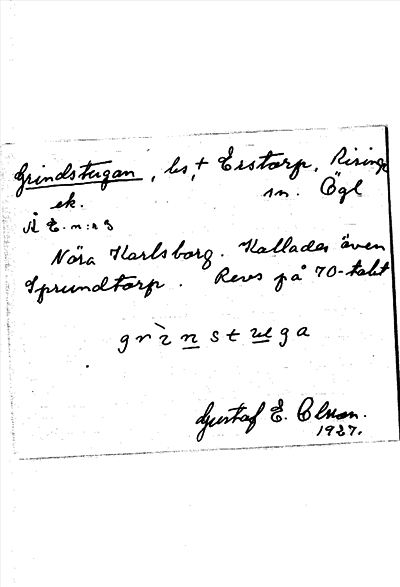 Grindstugan, bs,† Erstorp, Risinge
sn. Ögl
ek.
Å E. n:r 3
Nära Karlsborg. Kallades även
Sprundtorp. Revs på 70-talet
grìnstuga
Gustaf E. Olsson.
1927.